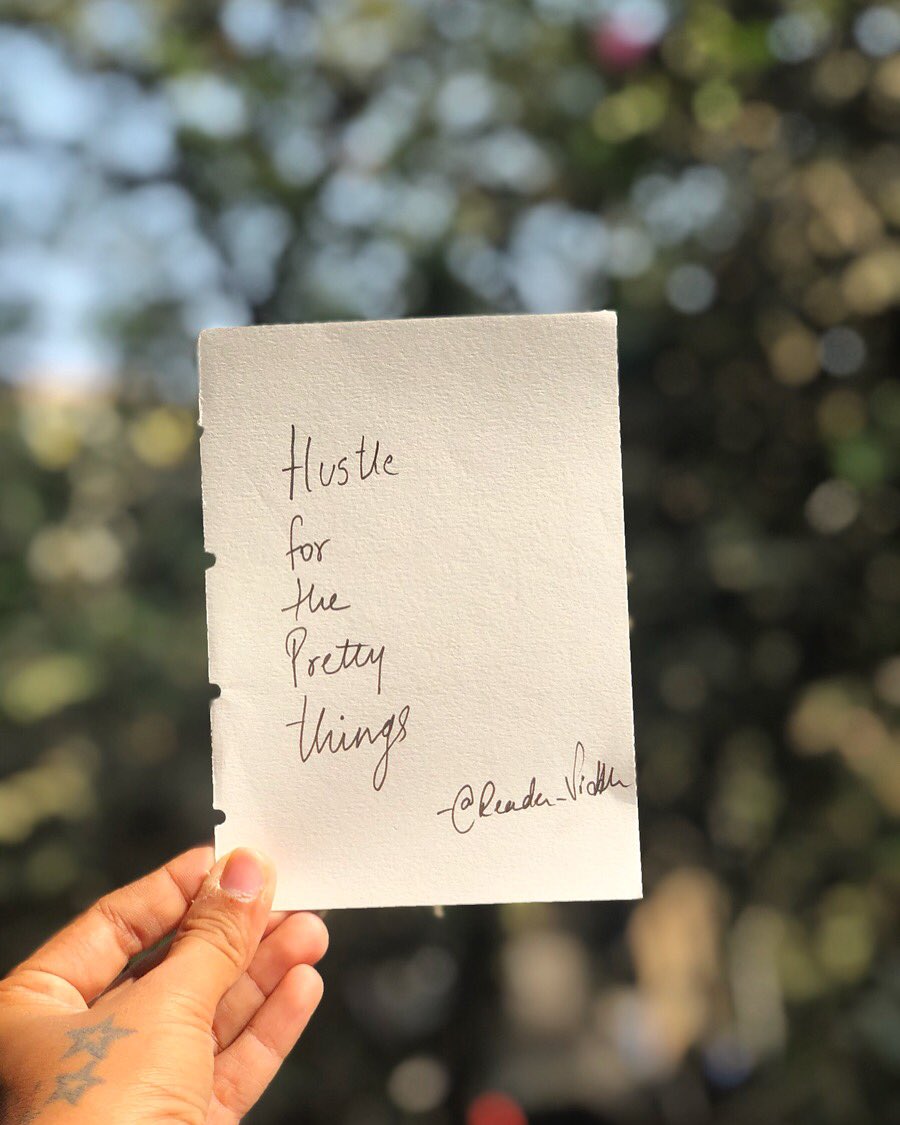 Hustle
for
the
Pretty
things